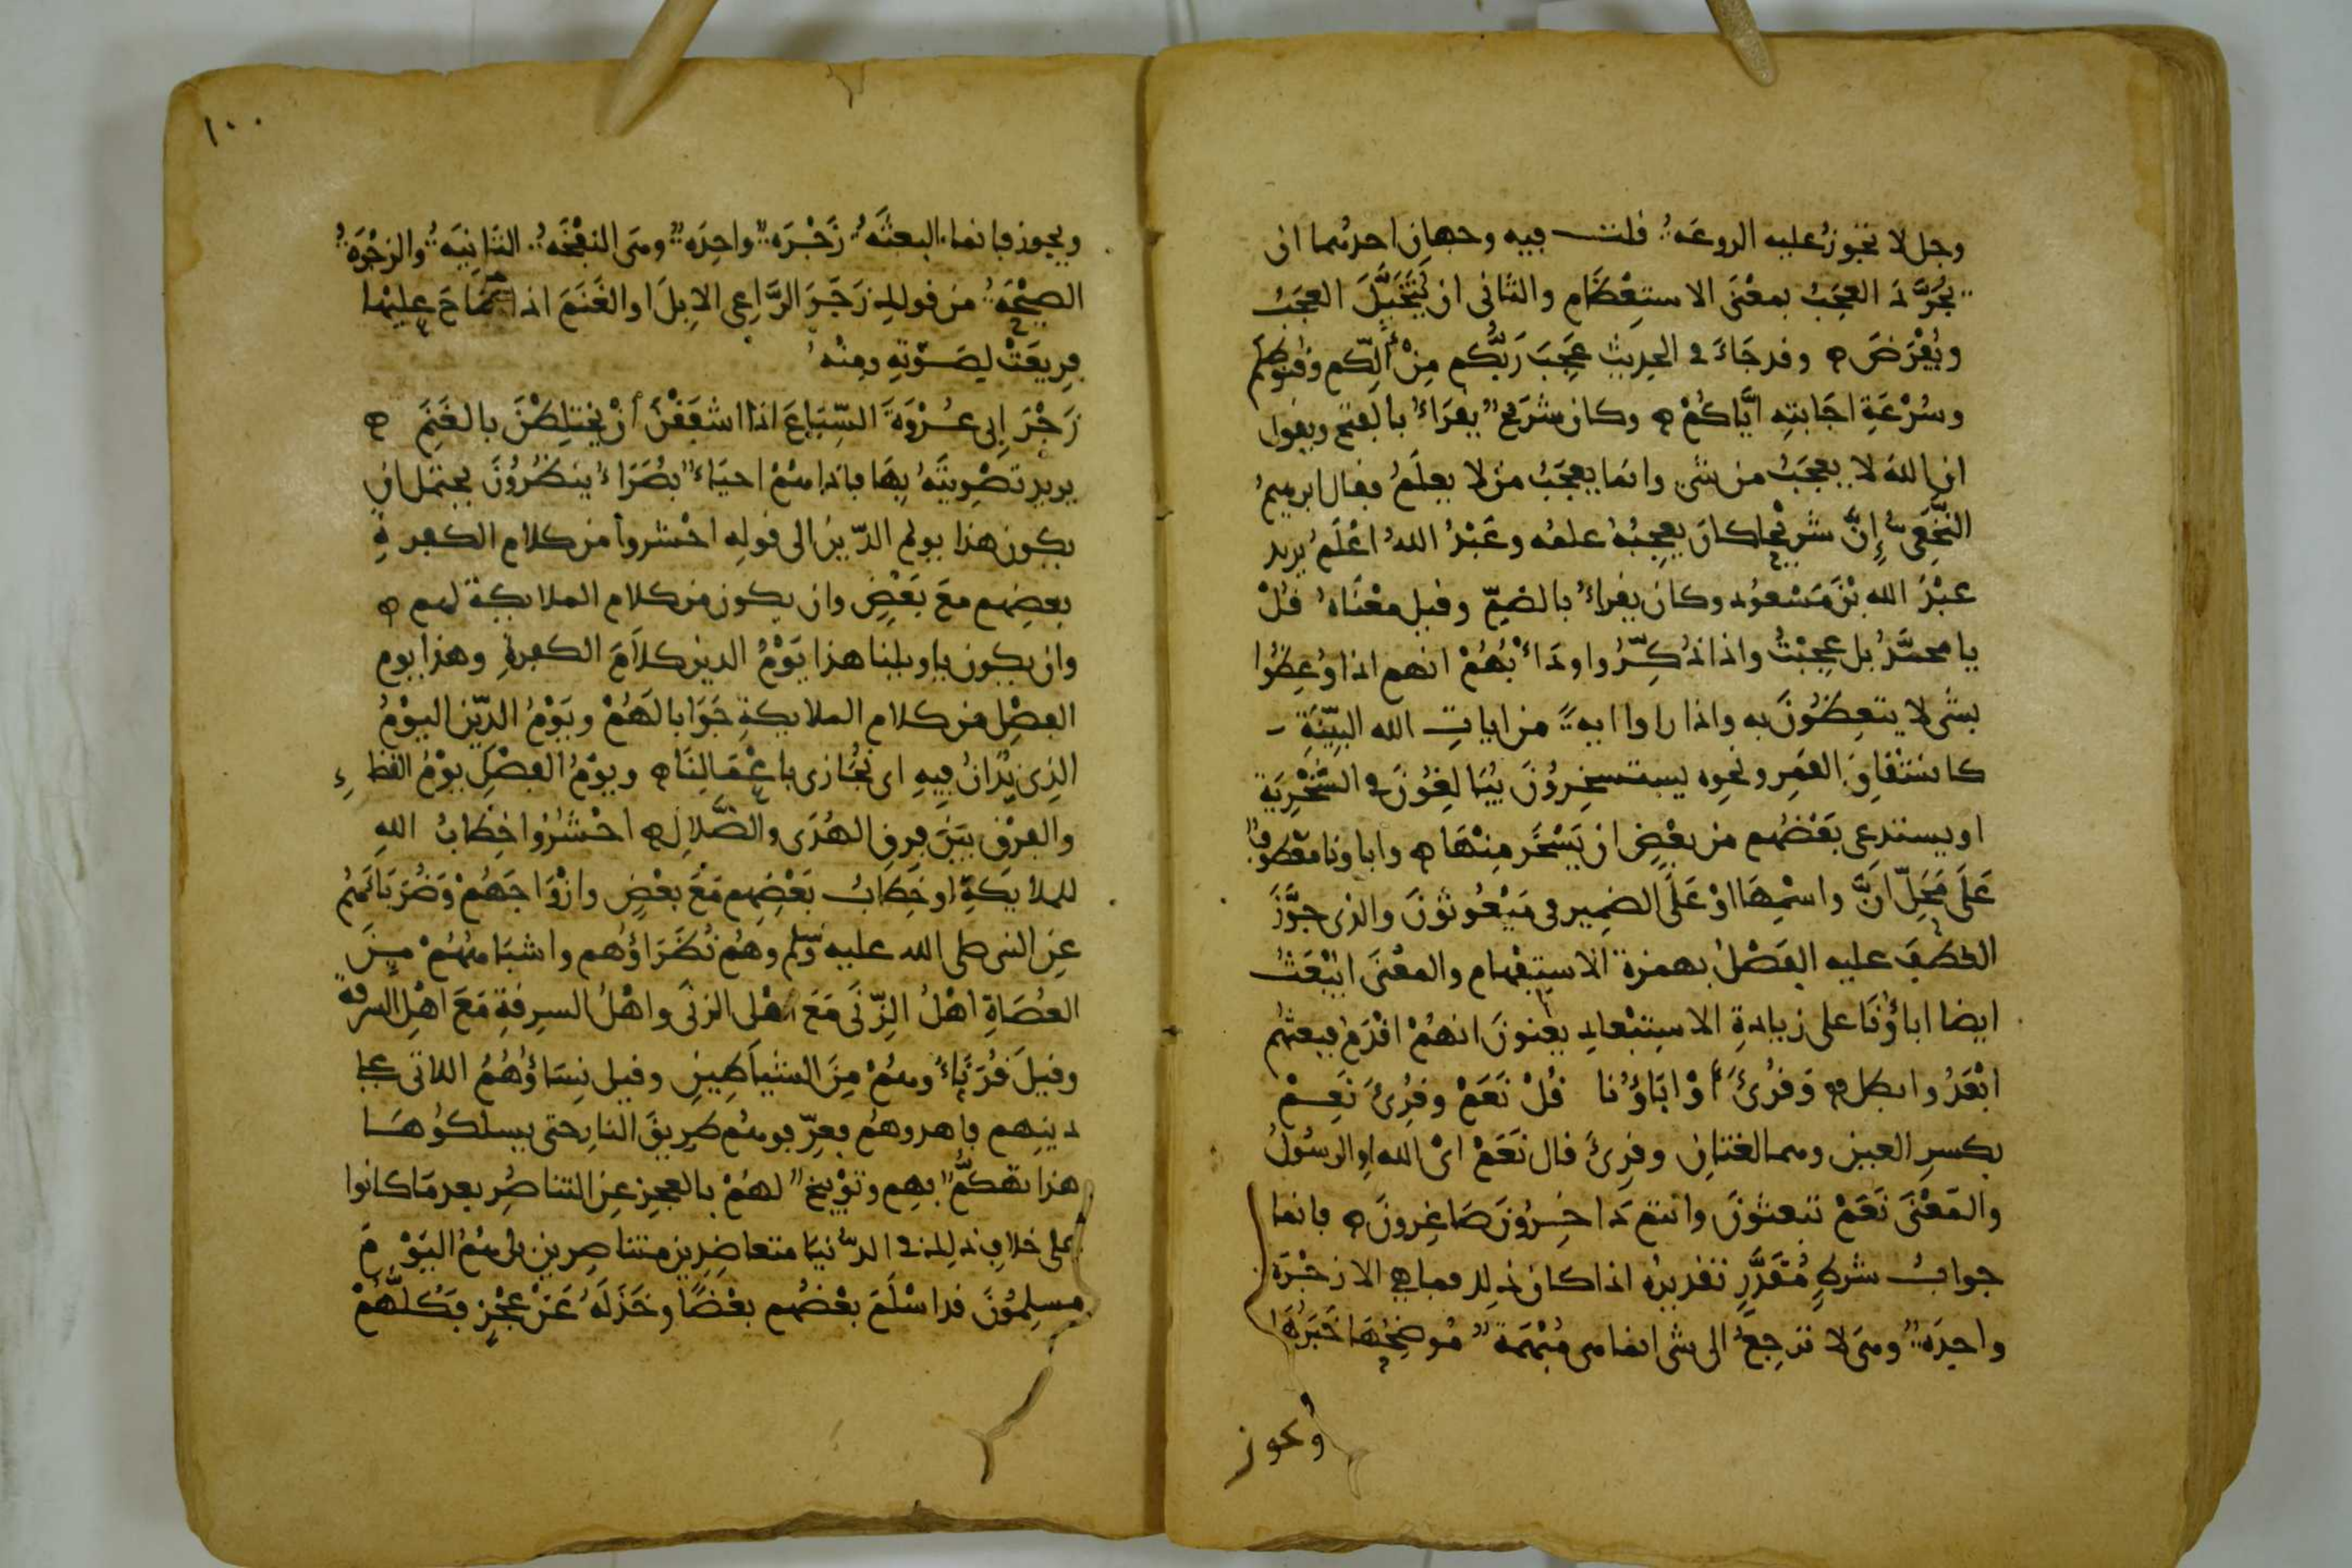 وجل لا تجوز عليه الروعة قلت فيه وجهان احدهما ان
يجرد العجب بمعنى الاستعظام والثانى ان يتخيل العجب
ويفرض وقد جاء فى الحديث عجب ربكم من الكم وقنوطكم
وسرعة اجابته اياكم وكان شريح يقراء بالفتح ويقول
ان الله لا يعجب من شى وانما يعجب من لا يعلم فقال ابرهيم
النخعى إن شريحا كان يعجبه علمه وعبد الله اعلم يريد
عبد الله بن مسعود وكان يقراء بالضم وقيل معناه قل
يا محمد بل عجبت واذا ذكروا ودأبهم انهم اذا وعظوا
بشى لا يتعظون به واذا راوا اية من ايات الله البينة
كانشقاق القمر ونحوه يستسخرون يبالغون فى السخرية
او يستدعى بعضهم من بعض ان يسخر منها واباونا معطوف
على محل ان واسمها او على الضمير فى مبعوثون والذى جوز
العطف عليه الفصل بهمزة الاستفهام والمعنى ايبعث
ايضا اباؤنا على زيادة الاستبعاد يعنون انهم اقدم فبعثهم
ابعد وابطل وقرئ أو اباؤنا قل نعم وقرئ نعم
بكسر العين وهما لغتان وقرئ قال نعم اى الله او الرسول
والمعنى نعم تبعثون وانتم داخرون صاغرون فانما
جواب شرط مقدر تقديره اذا كان ذلك فما هى الا زجرة
واحدة وهى لا ترجع الى شى انما هى مبهمة موضحها خبرها
ويجوز
١٠٠
ويجوز فانما البعثة زجرة واحدة وهى النفخة الثانية والزجرة
الصيحة من قولك زجر الراعى الابل او الغنم اذا صاح عليها
فريعت لصوته ومنه
زجر ابى عروة السباع اذا اشفقن أن يختلطن بالغنم
يريد تصويته بها فاذا هم احياء بصراء ينظرون يحتمل ان
يكون هذا يوم الدين الى قوله احشروا من كلام الكفرة
بعضهم مع بعض وان يكون من كلام الملايكة لهم
وان يكون ياويلنا هذا يوم الدين كلام الكفرة وهذا يوم
الفصل من كلام الملايكة جوابا لهم ويوم الدين اليوم
الذى ندان فيه اى نجازى باعمالنا ويوم الفصل يوم القضاء
والفرق بين فرق الهدى والضلال احشروا خطاب الله
للملايكة او خطاب بعضهم مع بعض وازواجهم وضرباءهم
عن النبى صلى الله عليه وسلم وهم نظراؤهم واشباههم من
العصاة اهل الزنى مع اهل الزنى واهل السرقة مع اهل السرقة
وقيل قرناءهم من الشياطين وقيل نساؤهم اللاتى على
دينهم فاهدوهم فعرفوهم طريق النار حتى يسلكوها
هذا تهكم بهم وتوبيخ لهم بالعجز عن التناصر بعد ما كانوا
على خلاف ذلك فى الدنيا متعاضدين متناصرين بل هم اليوم
مستسلمون قد اسلم بعضهم بعضا وخذله عن عجز فكلهم